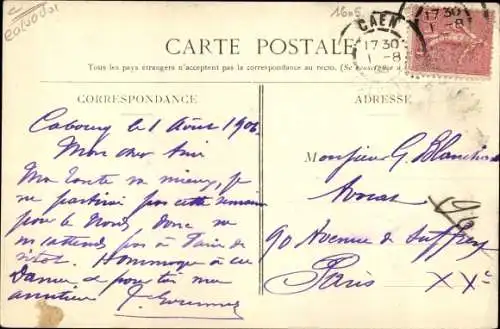 Calvados
1606
CAEN
17 30
1 -8
CARTE POSTALE
Tous les pays étrangers n'acceptent pas la correspondance au recto. (Se
CORRESPONDANCE
ADRESSE
Cabourg le 1 Août 1906
Mon cher ami
Ma tante va mieux, je
ne partirai pas cette semaine
pour le Nord, donc ne
m'attends pas à Paris de
sitôt. Hommage à ces
Dames et pour toi mes
amitiés
Monsieur G. Blanchard
Avocat
90 Avenue de Suffren
Paris XVe